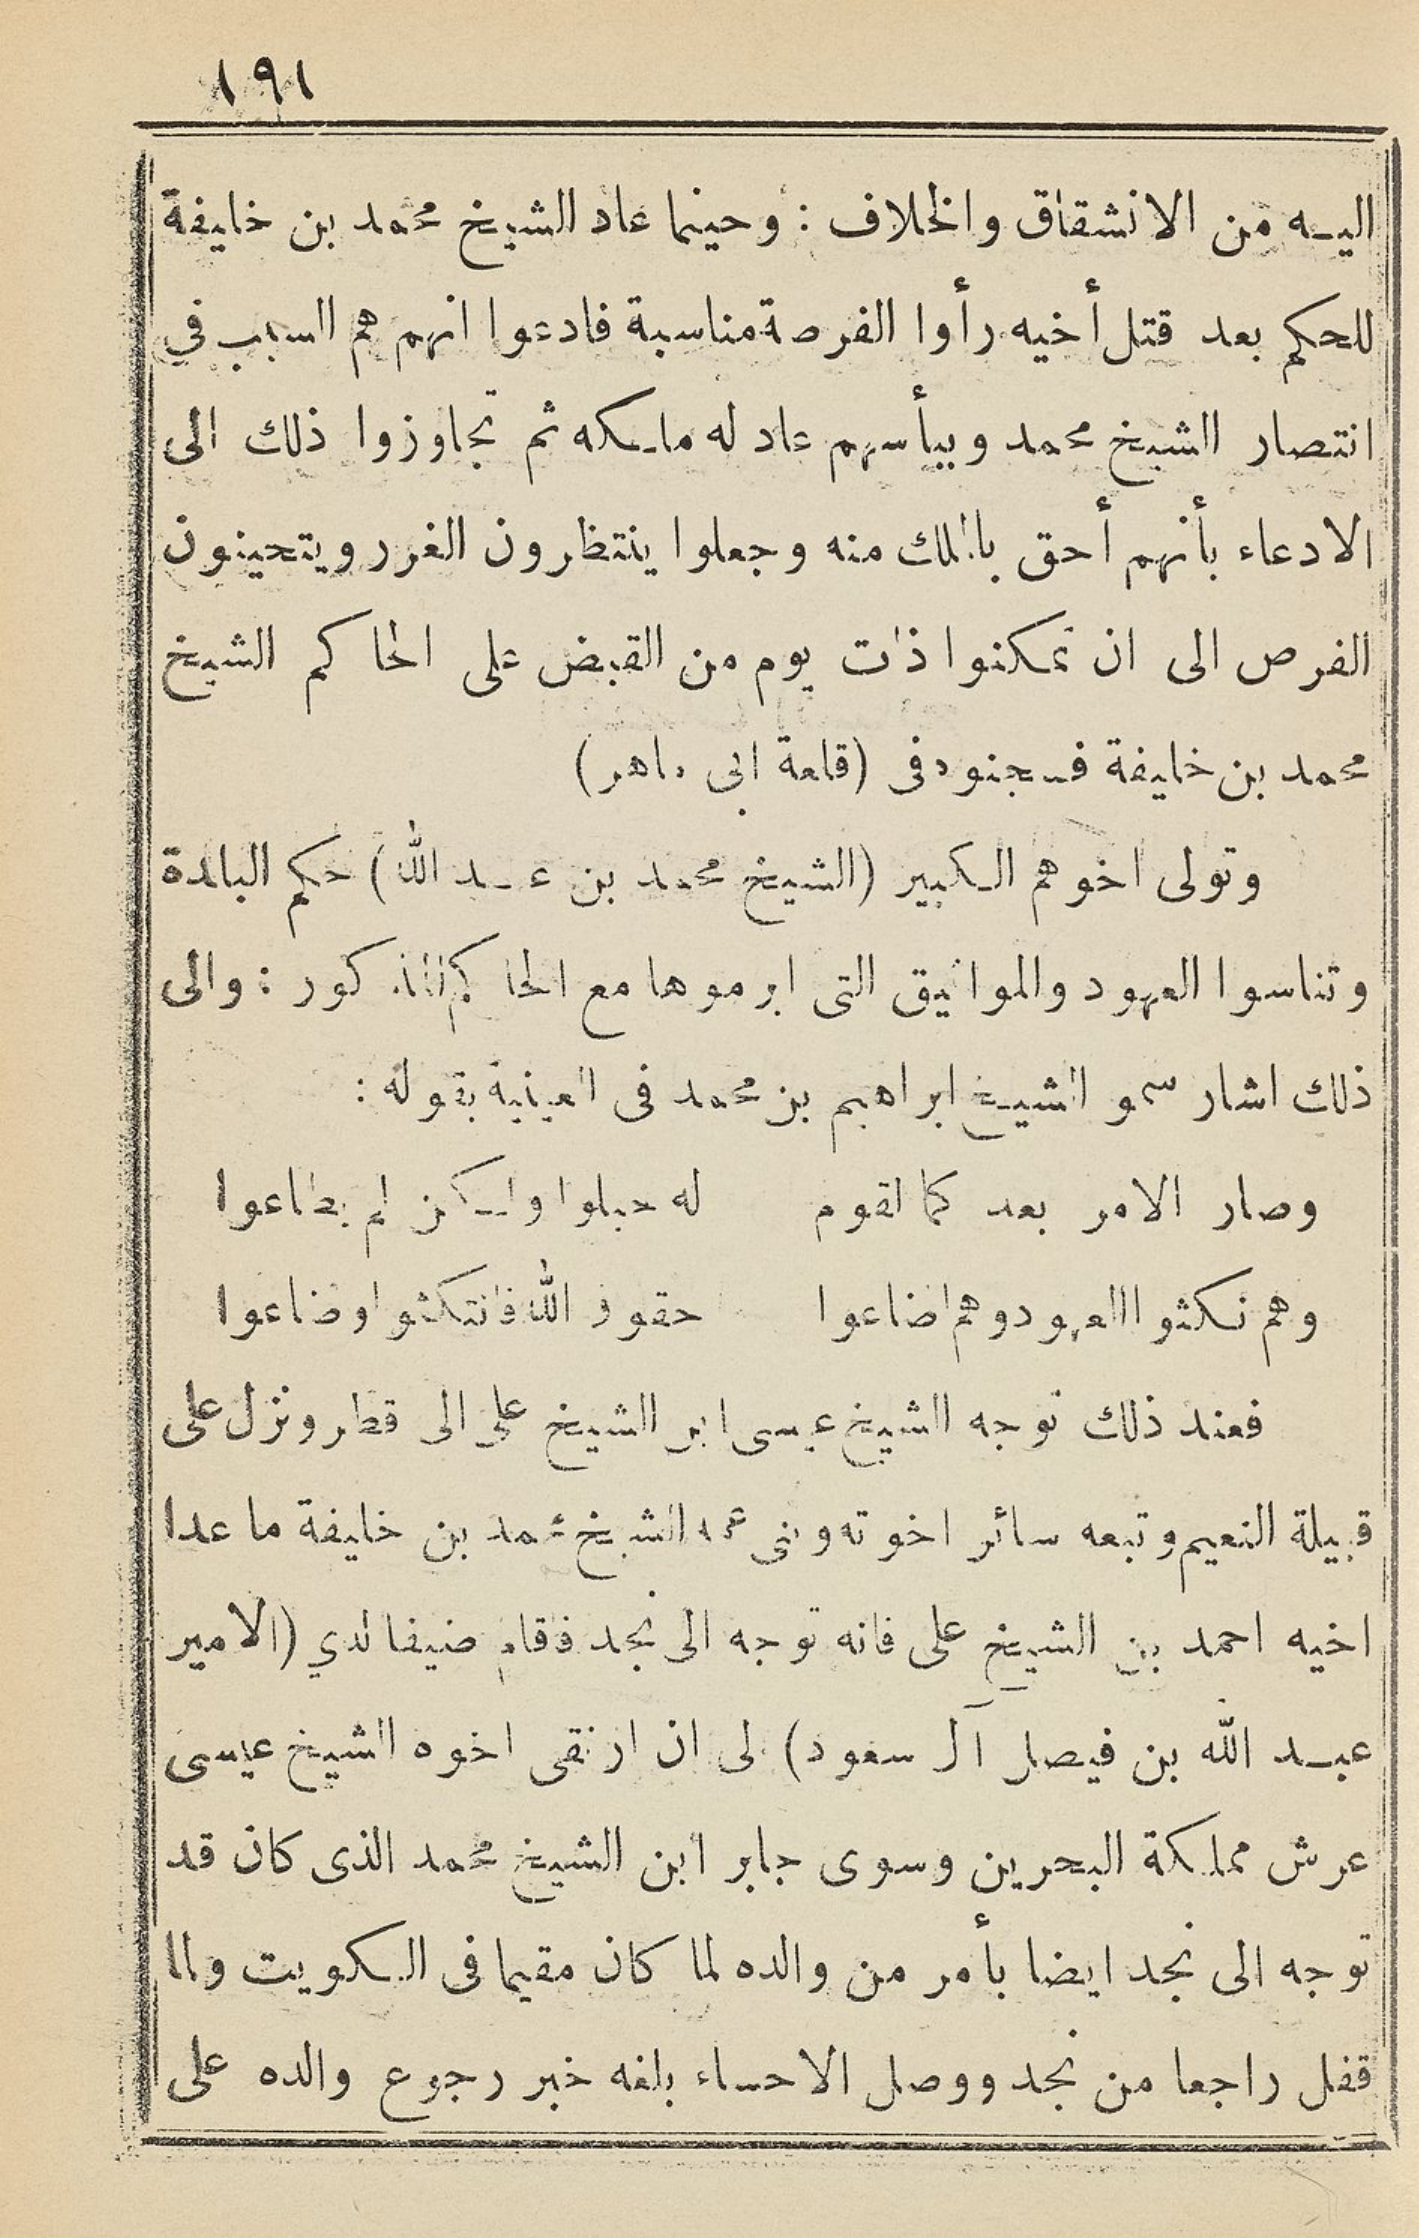 ١٩١
اليه من الانشقاق والخلاف : وحينما عاد الشيخ محمد بن خليفة
للحكم بعد قتل أخيه رأوا الفرصة مناسبة فادعوا انهم هم السبب في
انتصار الشيخ محمد وببأسهم عاد له ملكه ثم تجاوزوا ذلك الى
الادعاء بأنهم أحق بالملك منه وجعلوا ينتظرون الغرر ويتحينون
الفرص الى ان تمكنوا ذات يوم من القبض على الحاكم الشيخ
محمد بن خليفة فسجنوه فى (قلعة ابى ماهر)
وتولى اخوهم الكبير (الشيخ محمد بن عبد الله) حكم البلدة
وتناسوا العهود والمواثيق التى ابرموها مع الحاكم المذكور : والى
ذلك اشار سمو الشيخ ابراهيم بن محمد فى العينية بقوله :
وصار الامر بعد كما لقوم له حبلوا ولكن لم يطاعوا
وهم نكثوا العهود وهم اضاعوا حقوق الله فانتكثوا وضاعوا
فعند ذلك توجه الشيخ عيسى ابن الشيخ على الى قطر ونزل على
قبيلة النعيم وتبعه سائر اخوته وبنى عمه الشيخ محمد بن خليفة ما عدا
اخيه احمد بن الشيخ على فانه توجه الى نجد فاقام ضيفا لدي (الامير
عبد الله بن فيصل آل سعود) الى ان ارتقى اخوه الشيخ عيسى
عرش مملكة البحرين وسوى جابر ابن الشيخ محمد الذى كان قد
توجه الى نجد ايضا بأمر من والده لما كان مقيما فى الكويت ولما
قفل راجعا من نجد ووصل الاحساء بلغه خبر رجوع والده على